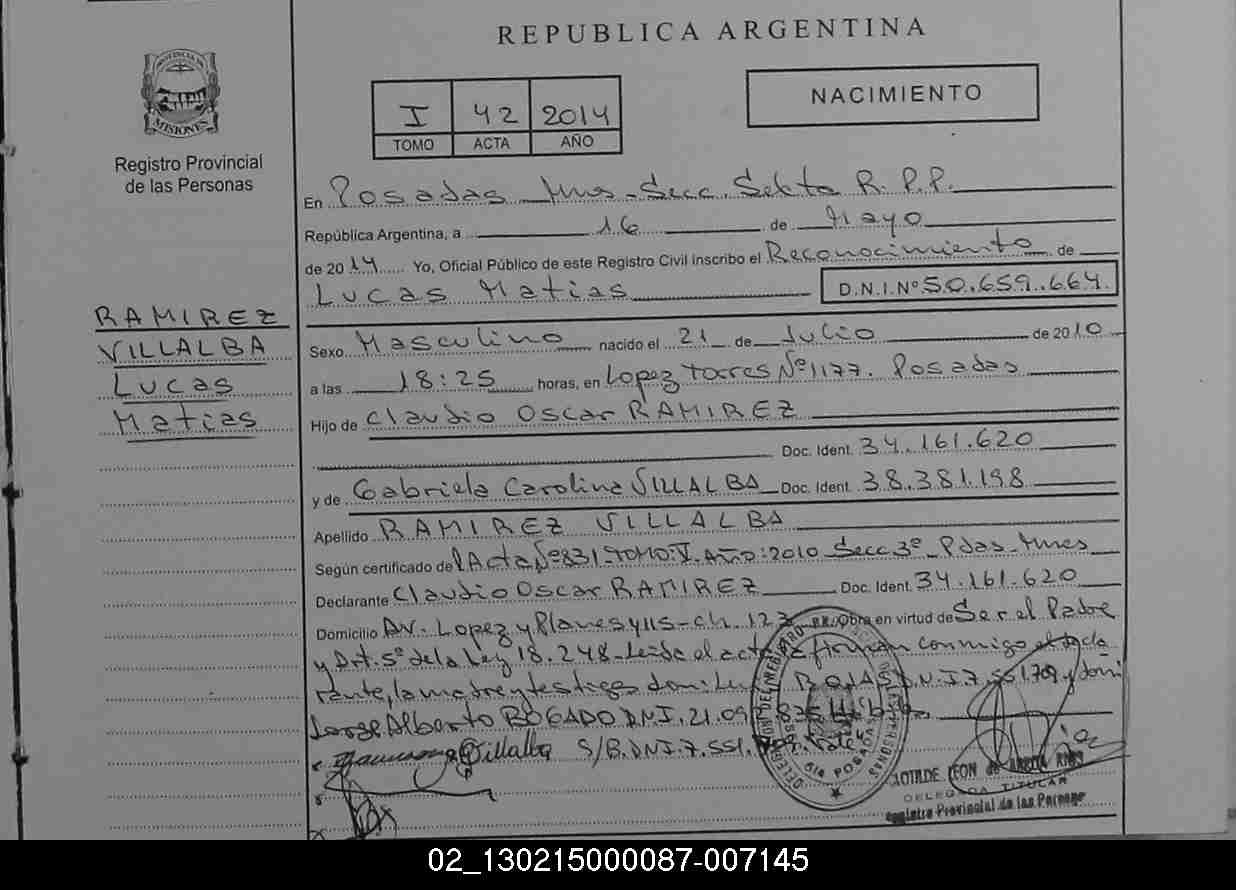 REPUBLICA ARGENTINA
PROVINCIA DE
MISIONES
Registro Provincial
de las Personas
I 42 2014
TOMO ACTA AÑO
NACIMIENTO
En Posadas Mnes-Secc. Sexta R. P. P.
República Argentina, a 16 de Mayo
de 2014 Yo, Oficial Público de este Registro Civil inscribo el Reconocimiento de
Lucas Matias D.N.I.Nº 50.659.664.
RAMIREZ
VILLALBA
Lucas
Matias
Sexo Masculino nacido el 21 de Julio de 2010
a las 18:25 horas, en Lopez Torres Nº 1177. Posadas
Hijo de Claudio Oscar RAMIREZ
Doc. Ident. 34.161.620
y de Gabriela Carolina VILLALBA Doc. Ident. 38.381.198
Apellido RAMIREZ VILLALBA
Según certificado del Acta Nº 831-TOMO:V. AÑO:2010 Secc 3º-Pdas-Mnes
Declarante Claudio Oscar RAMIREZ Doc. Ident. 34.161.620
Domicilio AV. Lopez y Planes y 115-ch. 123 Obra en virtud de Ser el Padre
y Art. 5º de la Ley 18.248-Leida el acta firman conmigo el decla
rante, la madre y testigos ROJAS D.N.I. 7.551.709 y
Jorge Alberto BOGADO D.N.I. 21.
Villalba S/B. DNI. 7.551. Vale
CLOTILDE LEON de
DELEGADA TITULAR
Registro Provincial de las Personas
02_130215000087-007145